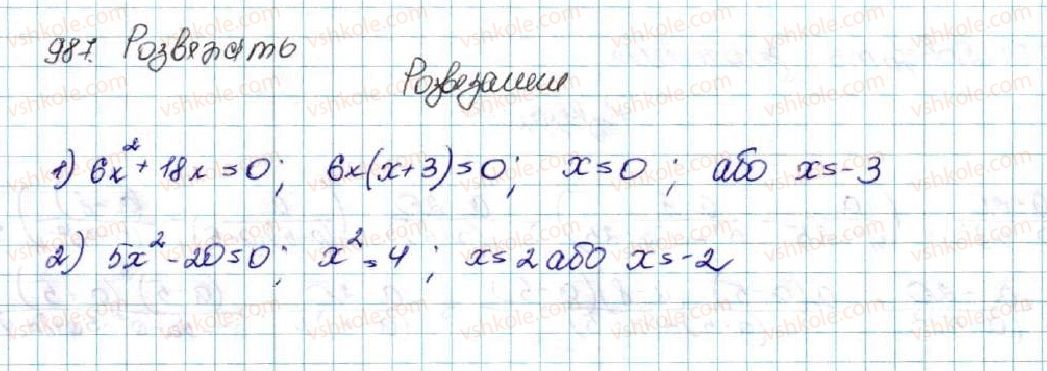 987. Розвязать
Розвезание
1) 6x² + 18x = 0; 6x(x+3) = 0; x = 0; або x = -3
2) 5x² - 20 = 0; x² = 4; x = 2 або x = -2